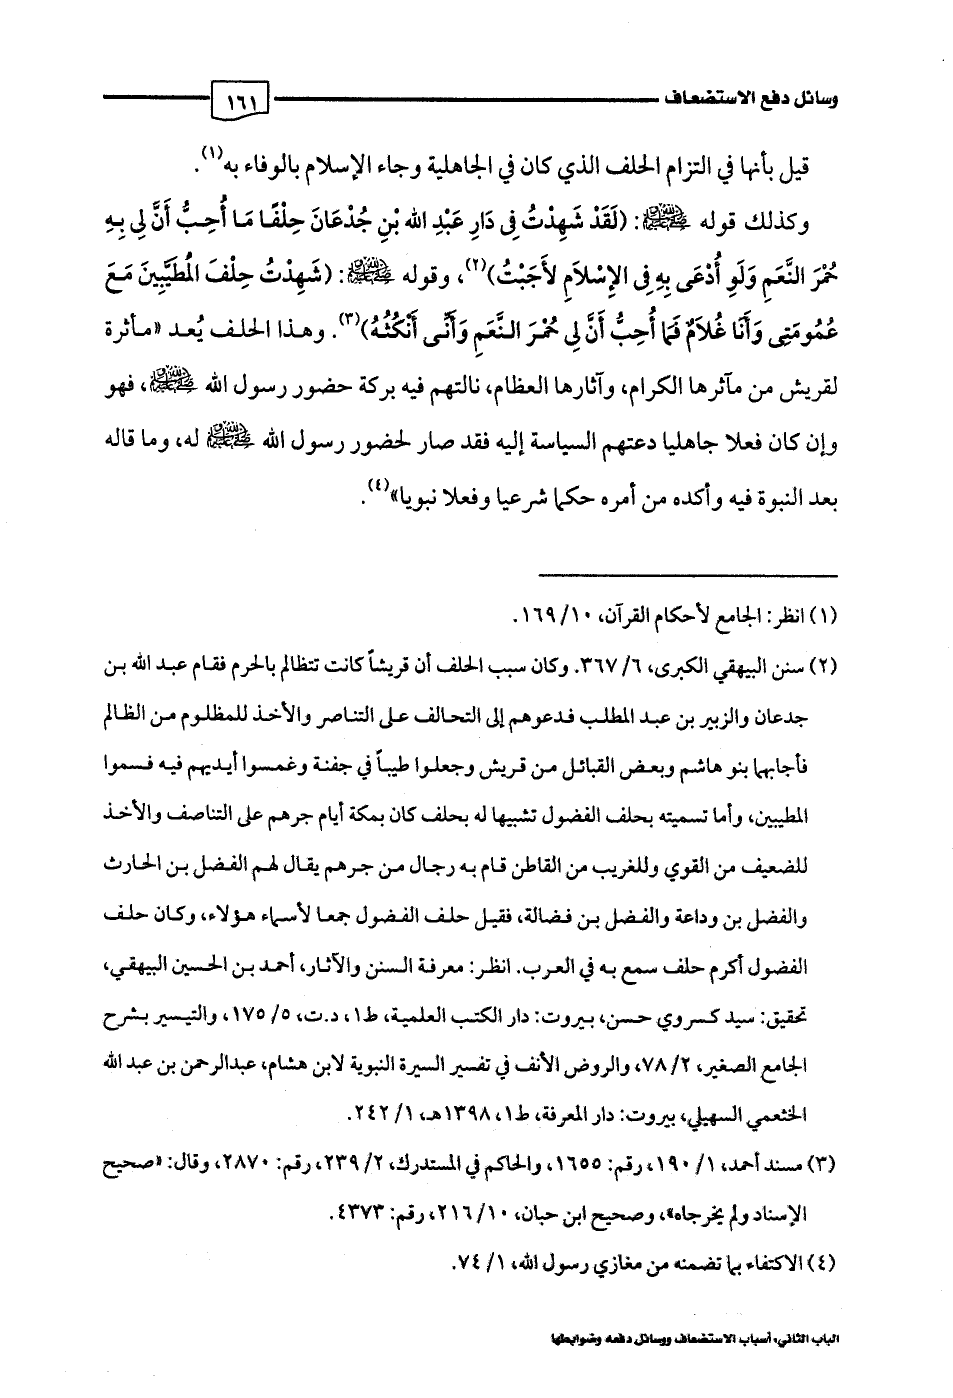 وسائل دفع الاستضعاف ١٦١
قيل بأنها في التزام الحلف الذي كان في الجاهلية وجاء الإسلام بالوفاء به(١).
وكذلك قوله ﷺ: (لَقَدْ شَهِدْتُ فِى دَارِ عَبْدِ الله بْنِ جُدْعَانَ حِلْفًا مَا أُحِبُّ أَنَّ لِي بِهِ
حُمْرَ النَّعَمِ وَلَوِ أُدْعَى بِهِ فِى الإِسْلاَمِ لأَجَبْتُ)(٢)، وقوله ﷺ: (شَهِدْتُ حِلْفَ المُطَيَّبِينَ مَعَ
عُمُومَتِى وَأَنَا غُلاَمٌ فَمَا أُحِبُّ أَنَّ لِي حُمْرَ النَّعَمِ وَأَنِّى أَنْكُثُهُ)(٣). وهذا الحلف يُعد «مأثرة
لقريش من مآثرها الكرام، وآثارها العظام، نالتهم فيه بركة حضور رسول الله ﷺ، فهو
وإن كان فعلا جاهليا دعتهم السياسة إليه فقد صار لحضور رسول الله ﷺ له، وما قاله
بعد النبوة فيه وأكده من أمره حكما شرعيا وفعلا نبويا»(٤).
(١) انظر: الجامع لأحكام القرآن، ١٠/ ١٦٩.
(٢) سنن البيهقي الكبرى، ٦/ ٣٦٧. وكان سبب الحلف أن قريشاً كانت تتظالم بالحرم فقام عبد الله بن
جدعان والزبير بن عبد المطلب فدعوهم إلى التحالف على التناصر والأخذ للمظلوم من الظالم
فأجابهما بنو هاشم وبعض القبائل من قريش وجعلوا طيباً في جفنة وغمسوا أيديهم فيه فسموا
المطيبين، وأما تسميته بحلف الفضول تشبيها له بحلف كان بمكة أيام جرهم على التناصف والأخذ
للضعيف من القوي وللغريب من القاطن قام به رجال من جرهم يقال لهم الفضل بن الحارث
والفضل بن وداعة والفضل بن فضالة، فقيل حلف الفضول جمعا لأسماء هؤلاء، وكان حلف
الفضول أكرم حلف سمع به في العرب. انظر: معرفة السنن والآثار، أحمد بن الحسين البيهقي،
تحقيق: سيد كسروي حسن، بيروت: دار الكتب العلمية، ط١، د.ت، ٥/ ١٧٥، والتيسير بشرح
الجامع الصغير، ٢/ ٧٨، والروض الأنف في تفسير السيرة النبوية لابن هشام، عبدالرحمن بن عبد الله
الخثعمي السهيلي، بيروت: دار المعرفة، ط١، ١٣٩٨هـ، ١/ ٢٤٢.
(٣) مسند أحمد، ١/ ١٩٠، رقم: ١٦٥٥، والحاكم في المستدرك، ٢/ ٢٣٩، رقم: ٢٨٧٠، وقال: «صحيح
الإسناد ولم يخرجاه»، وصحيح ابن حبان، ١٠/ ٢١٦، رقم: ٤٣٧٣.
(٤) الاكتفاء بما تضمنه من مغازي رسول الله، ١/ ٧٤.
الباب الثاني: أسباب الاستضعاف ووسائل دفعه وضوابطها